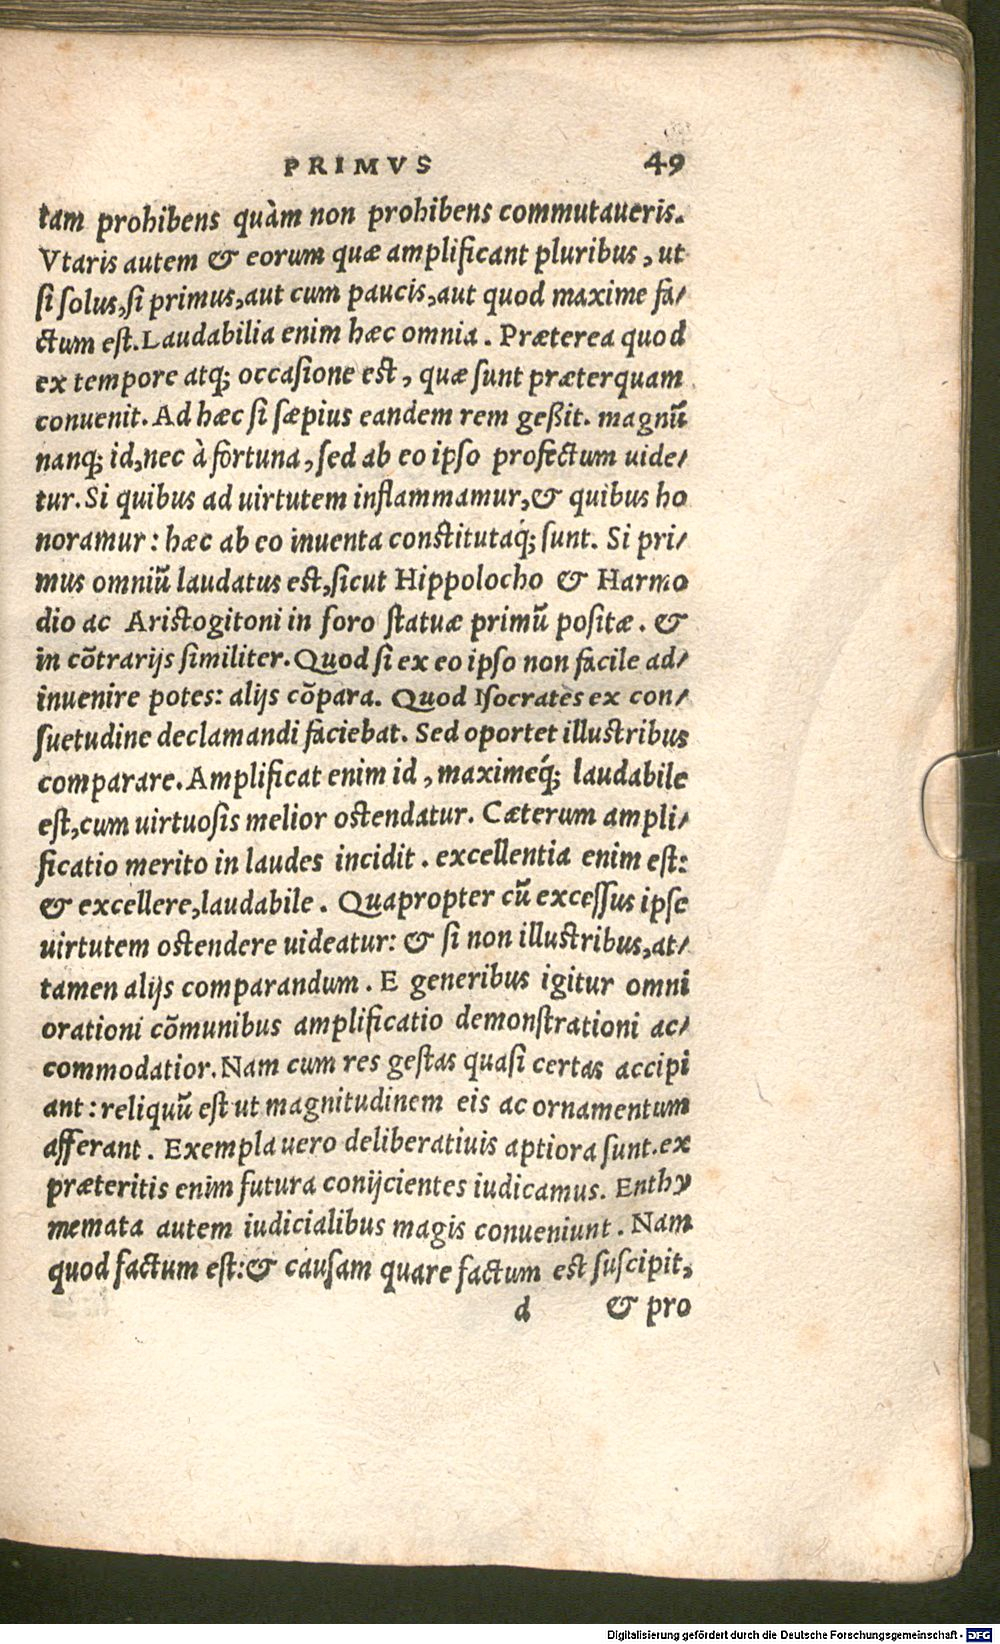 PRIMVS 49
tam prohibens quàm non prohibens commutaueris.
Vtaris autem & eorum quæ amplificant pluribus, ut
si solus, si primus, aut cum paucis, aut quod maxime fa/
ctum est. Laudabilia enim hæc omnia. Præterea quod
ex tempore atq; occasione est, quæ sunt præterquam
conuenit. Ad hæc si sæpius eandem rem geßit. magnū
nanq; id, nec à fortuna, sed ab eo ipso profectum uide/
tur. Si quibus ad uirtutem inflammamur, & quibus ho
noramur: hæc ab eo inuenta constitutaq́; sunt. Si pri/
mus omniū laudatus est, sicut Hippolocho & Harmo
dio ac Aristogitoni in foro statuæ primū positæ. &
in cōtrarijs similiter. Quod si ex eo ipso non facile ad/
inuenire potes: alijs cōpara. Quod Isocrates ex con/
suetudine declamandi faciebat. Sed oportet illustribus
comparare. Amplificat enim id, maximeq́; laudabile
est, cum uirtuosis melior ostendatur. Cæterum ampli/
ficatio merito in laudes incidit. excellentia enim est:
& excellere, laudabile. Quapropter cū excessus ipse
uirtutem ostendere uideatur: & si non illustribus, at/
tamen alijs comparandum. E generibus igitur omni
orationi cōmunibus amplificatio demonstrationi ac/
commodatior. Nam cum res gestas quasi certas accipi
ant: reliquū est ut magnitudinem eis ac ornamentum
afferant. Exempla uero deliberatiuis aptiora sunt. ex
præteritis enim futura conijcientes iudicamus. Enthy
memata autem iudicialibus magis conueniunt. Nam
quod factum est: & causam quare factum est suscipit,
d & pro
Digitalisierung gefördert durch die Deutsche Forschungsgemeinschaft - DFG